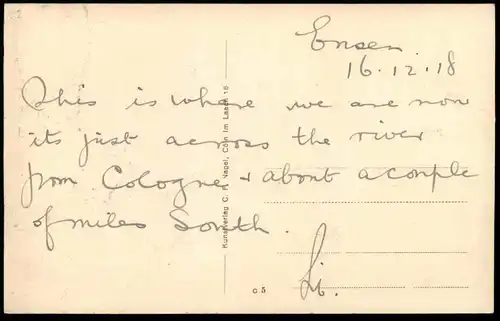 Ensen
16.12.18
This is where we are now
its just across the river
from Cologne & about a couple
of miles South.
Kunstverlag C. H. Nagel, Cöln im Laach 16
C 5